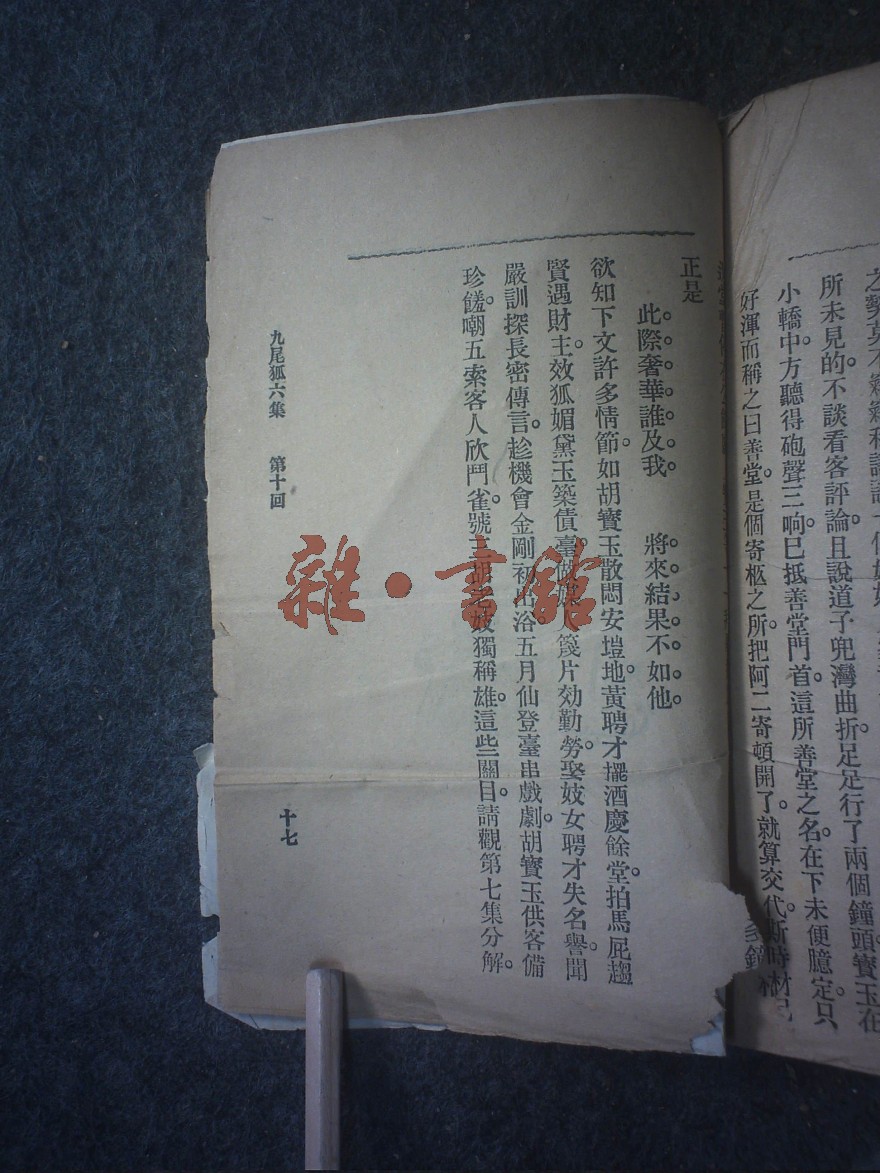 之
所未見的不談看客評論。且說道子兜灣曲折。足足行了兩個鐘頭。寶玉在
小轎中方聽得砲聲三响。已抵善堂門首。這所善堂之名。在下未便臆定。只
好渾而稱之曰善堂。是個寄柩之所。把阿二寄頓開了。就算交代。斯時
正是
此。際。奢。華。誰。及。我。　將。來。結。果。不。如。他。
欲知下文許多情節。如胡寶玉散悶安塏地。黃聘才擺酒慶餘堂。拍馬屁趨
賢遇財主。效狐媚黛玉築債臺。篾片効勤勞。娶妓女聘才失名譽。聞
嚴訓探長密傳言。趁機會金剛初出浴。五月仙登臺串戲劇。胡寶玉供客備
珍饈。嘲五索客人欣鬥雀。號三妓獨稱雄。這些關目。請觀第七集分解。
九尾狐六集　第十回
十七
雜·書館